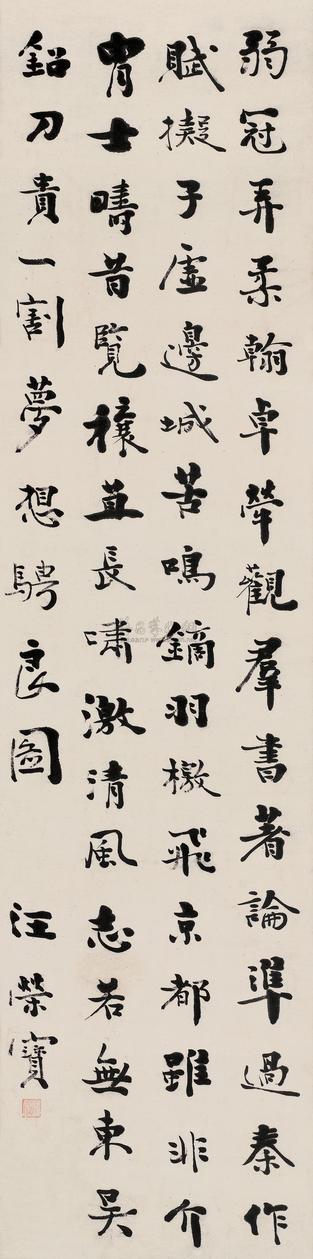 弱冠弄柔翰卓犖觀羣書著論準過秦作
賦擬子虛邊城苦鳴鏑羽檄飛京都雖非介
胄士疇昔覽穰苴長嘯激清風志若無東吳
鉛刀貴一割夢想騁良圖
汪榮寶